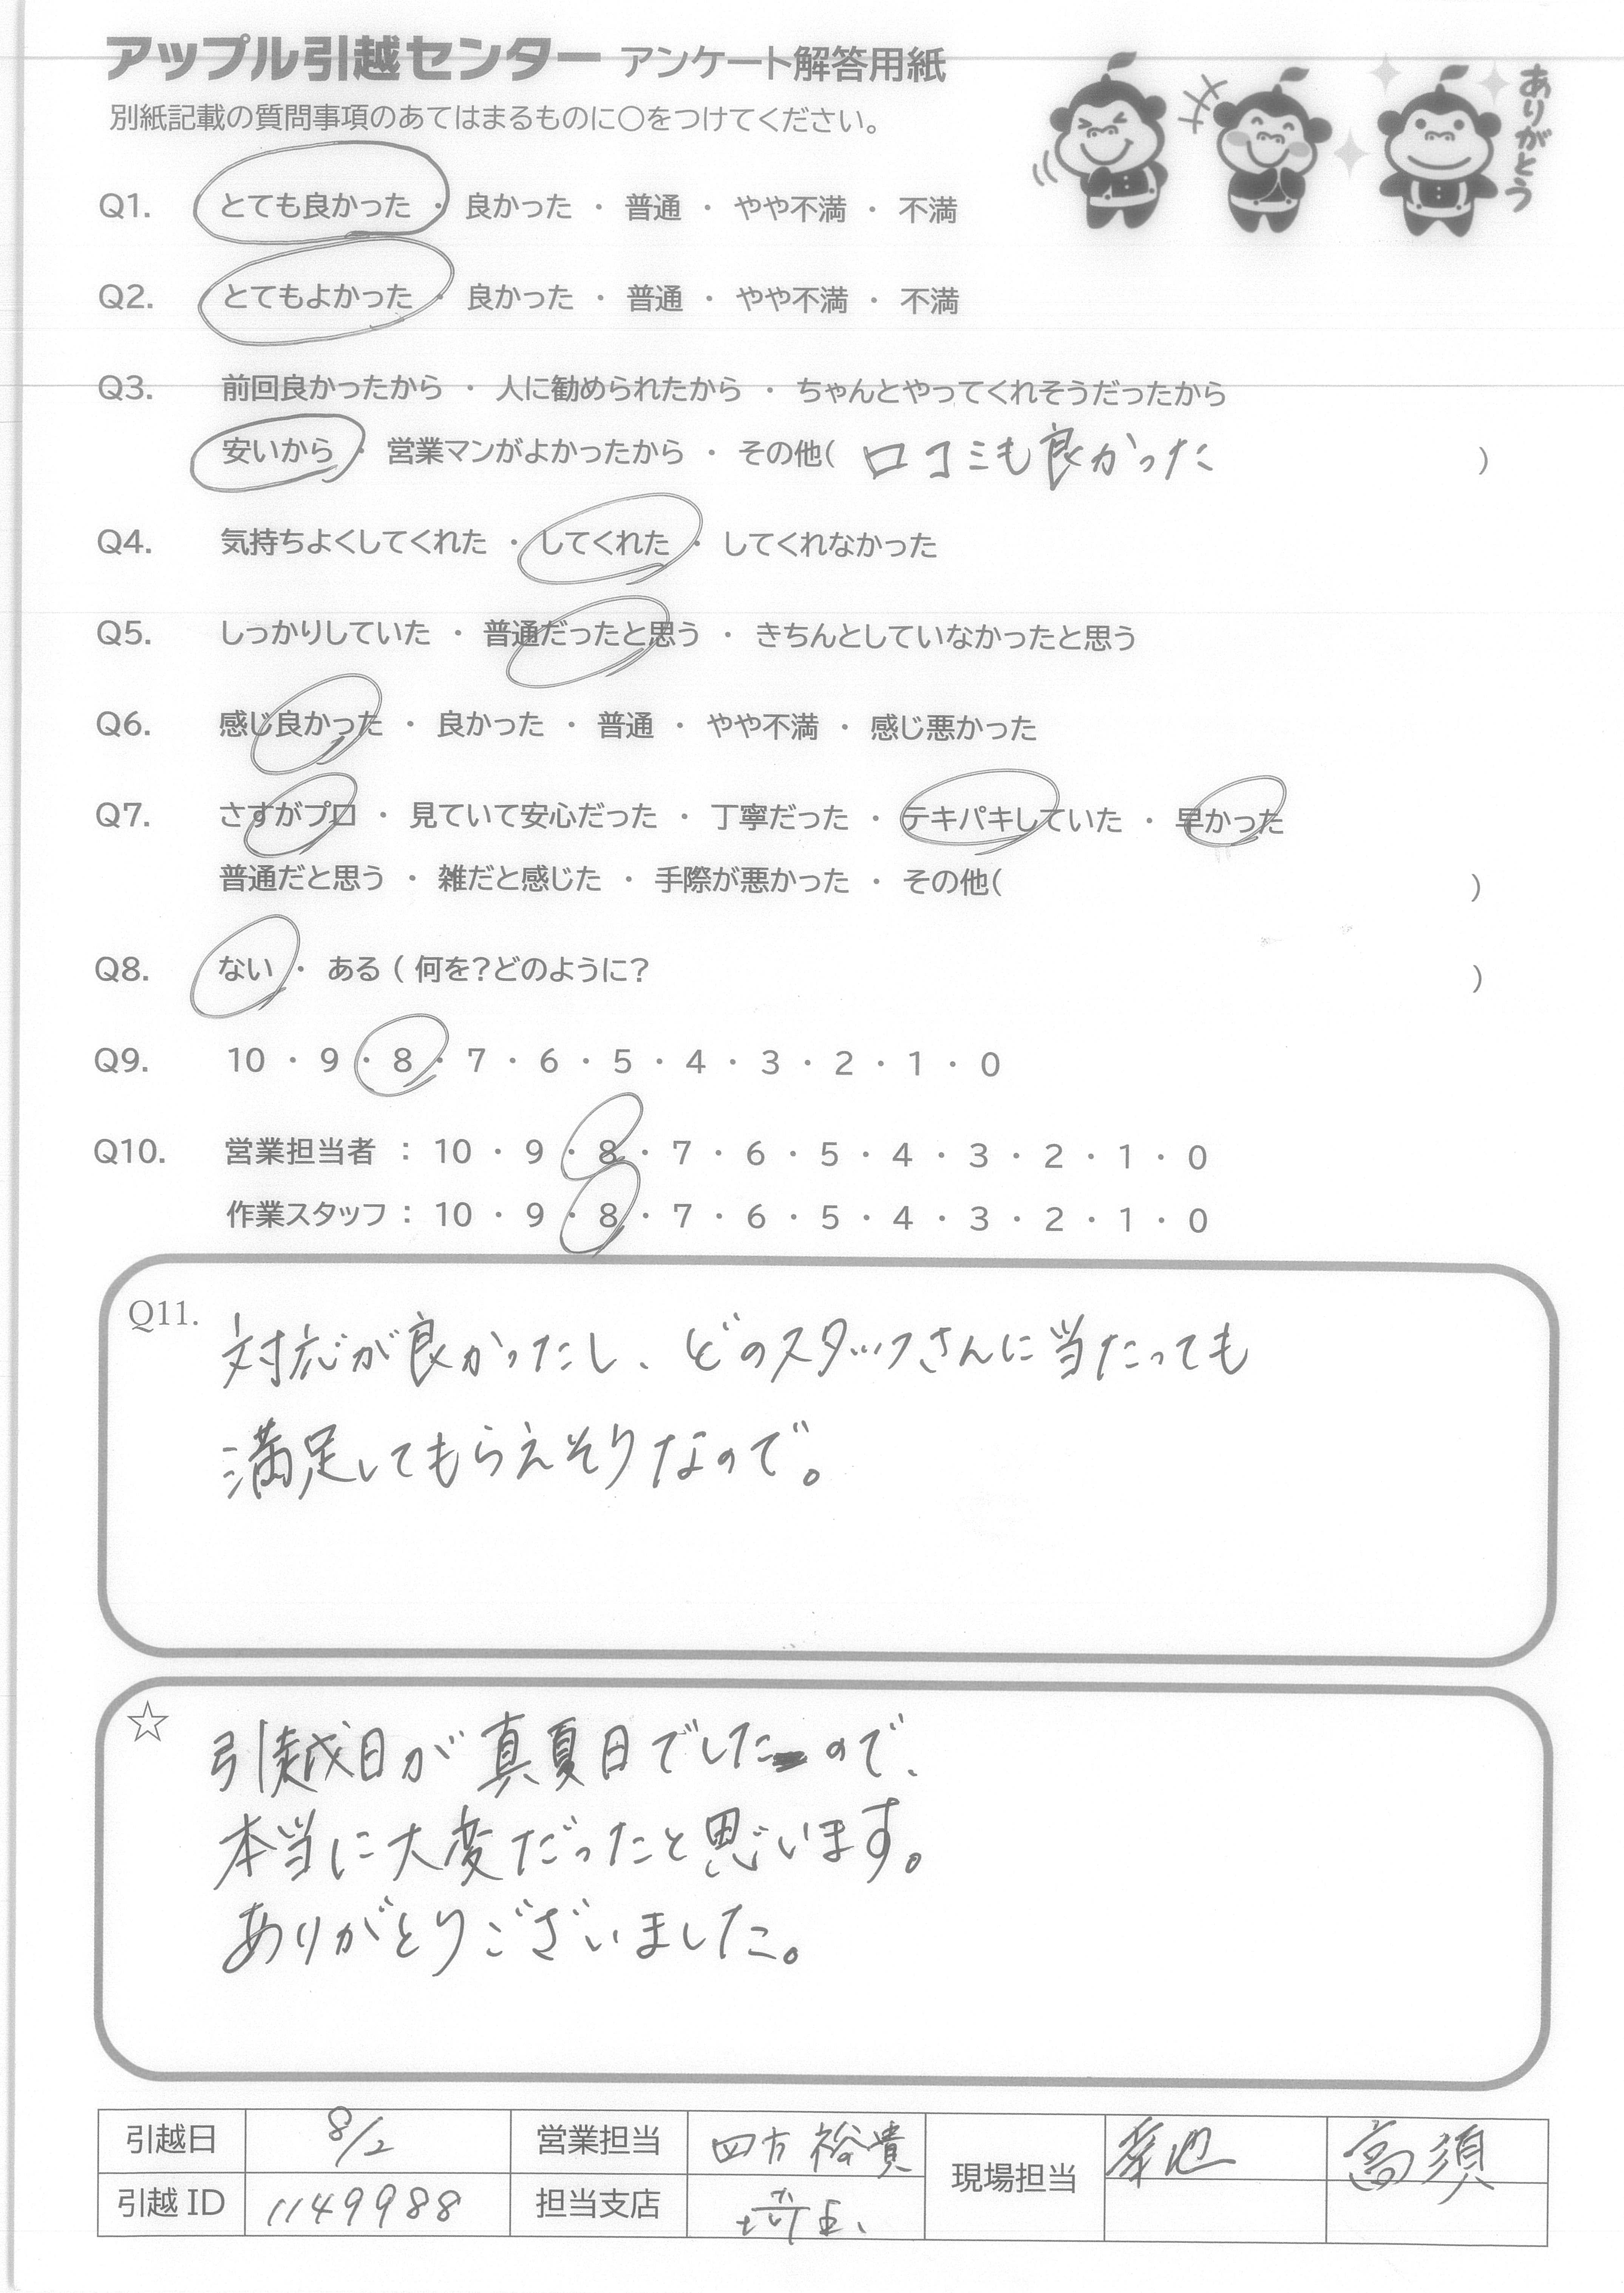 アップル引越センター アンケート解答用紙
別紙記載の質問事項のあてはまるものに○をつけてください。
ありがとう
Q1. とても良かった ・ 良かった ・ 普通 ・ やや不満 ・ 不満
Q2. とてもよかった ・ 良かった ・ 普通 ・ やや不満 ・ 不満
Q3. 前回良かったから ・ 人に勧められたから ・ ちゃんとやってくれそうだったから
安いから ・ 営業マンがよかったから ・ その他( 口コミも良かった )
Q4. 気持ちよくしてくれた ・ してくれた ・ してくれなかった
Q5. しっかりしていた ・ 普通だったと思う ・ きちんとしていなかったと思う
Q6. 感じ良かった ・ 良かった ・ 普通 ・ やや不満 ・ 感じ悪かった
Q7. さすがプロ ・ 見ていて安心だった ・ 丁寧だった ・ テキパキしていた ・ 早かった
普通だと思う ・ 雑だと感じた ・ 手際が悪かった ・ その他( )
Q8. ない ・ ある ( 何を?どのように? )
Q9. 10 ・ 9 ・ 8 ・ 7 ・ 6 ・ 5 ・ 4 ・ 3 ・ 2 ・ 1 ・ 0
Q10. 営業担当者 : 10 ・ 9 ・ 8 ・ 7 ・ 6 ・ 5 ・ 4 ・ 3 ・ 2 ・ 1 ・ 0
作業スタッフ : 10 ・ 9 ・ 8 ・ 7 ・ 6 ・ 5 ・ 4 ・ 3 ・ 2 ・ 1 ・ 0
Q11. 対応が良かったし、どのスタッフさんに当たっても
満足してもらえそうなので。
☆ 引越日が真夏日でしたので、
本当に大変だったと思います。
ありがとうございました。
引越日 8/2 営業担当 四方 裕貴 現場担当 高須
引越 ID 1149988 担当支店 埼玉